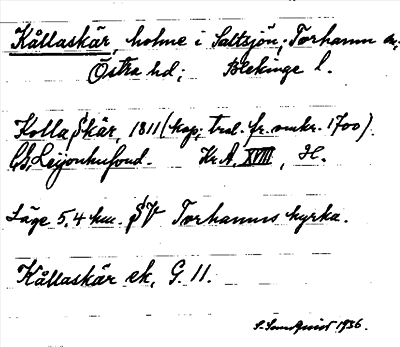 Kållaskär, holme i Saltsjön; Torhamn sn;
Östra hd; Blekinge l.
Kolla Skär, 1811 (kop; trol. fr. omkr. 1700).
CG, Leijonhufvud. Kr A, XVIII, H.
Läge 5,4 km. SV Torhamns kyrka.
Kållaskär ek, G. 11.
S. Sundquist 1936.